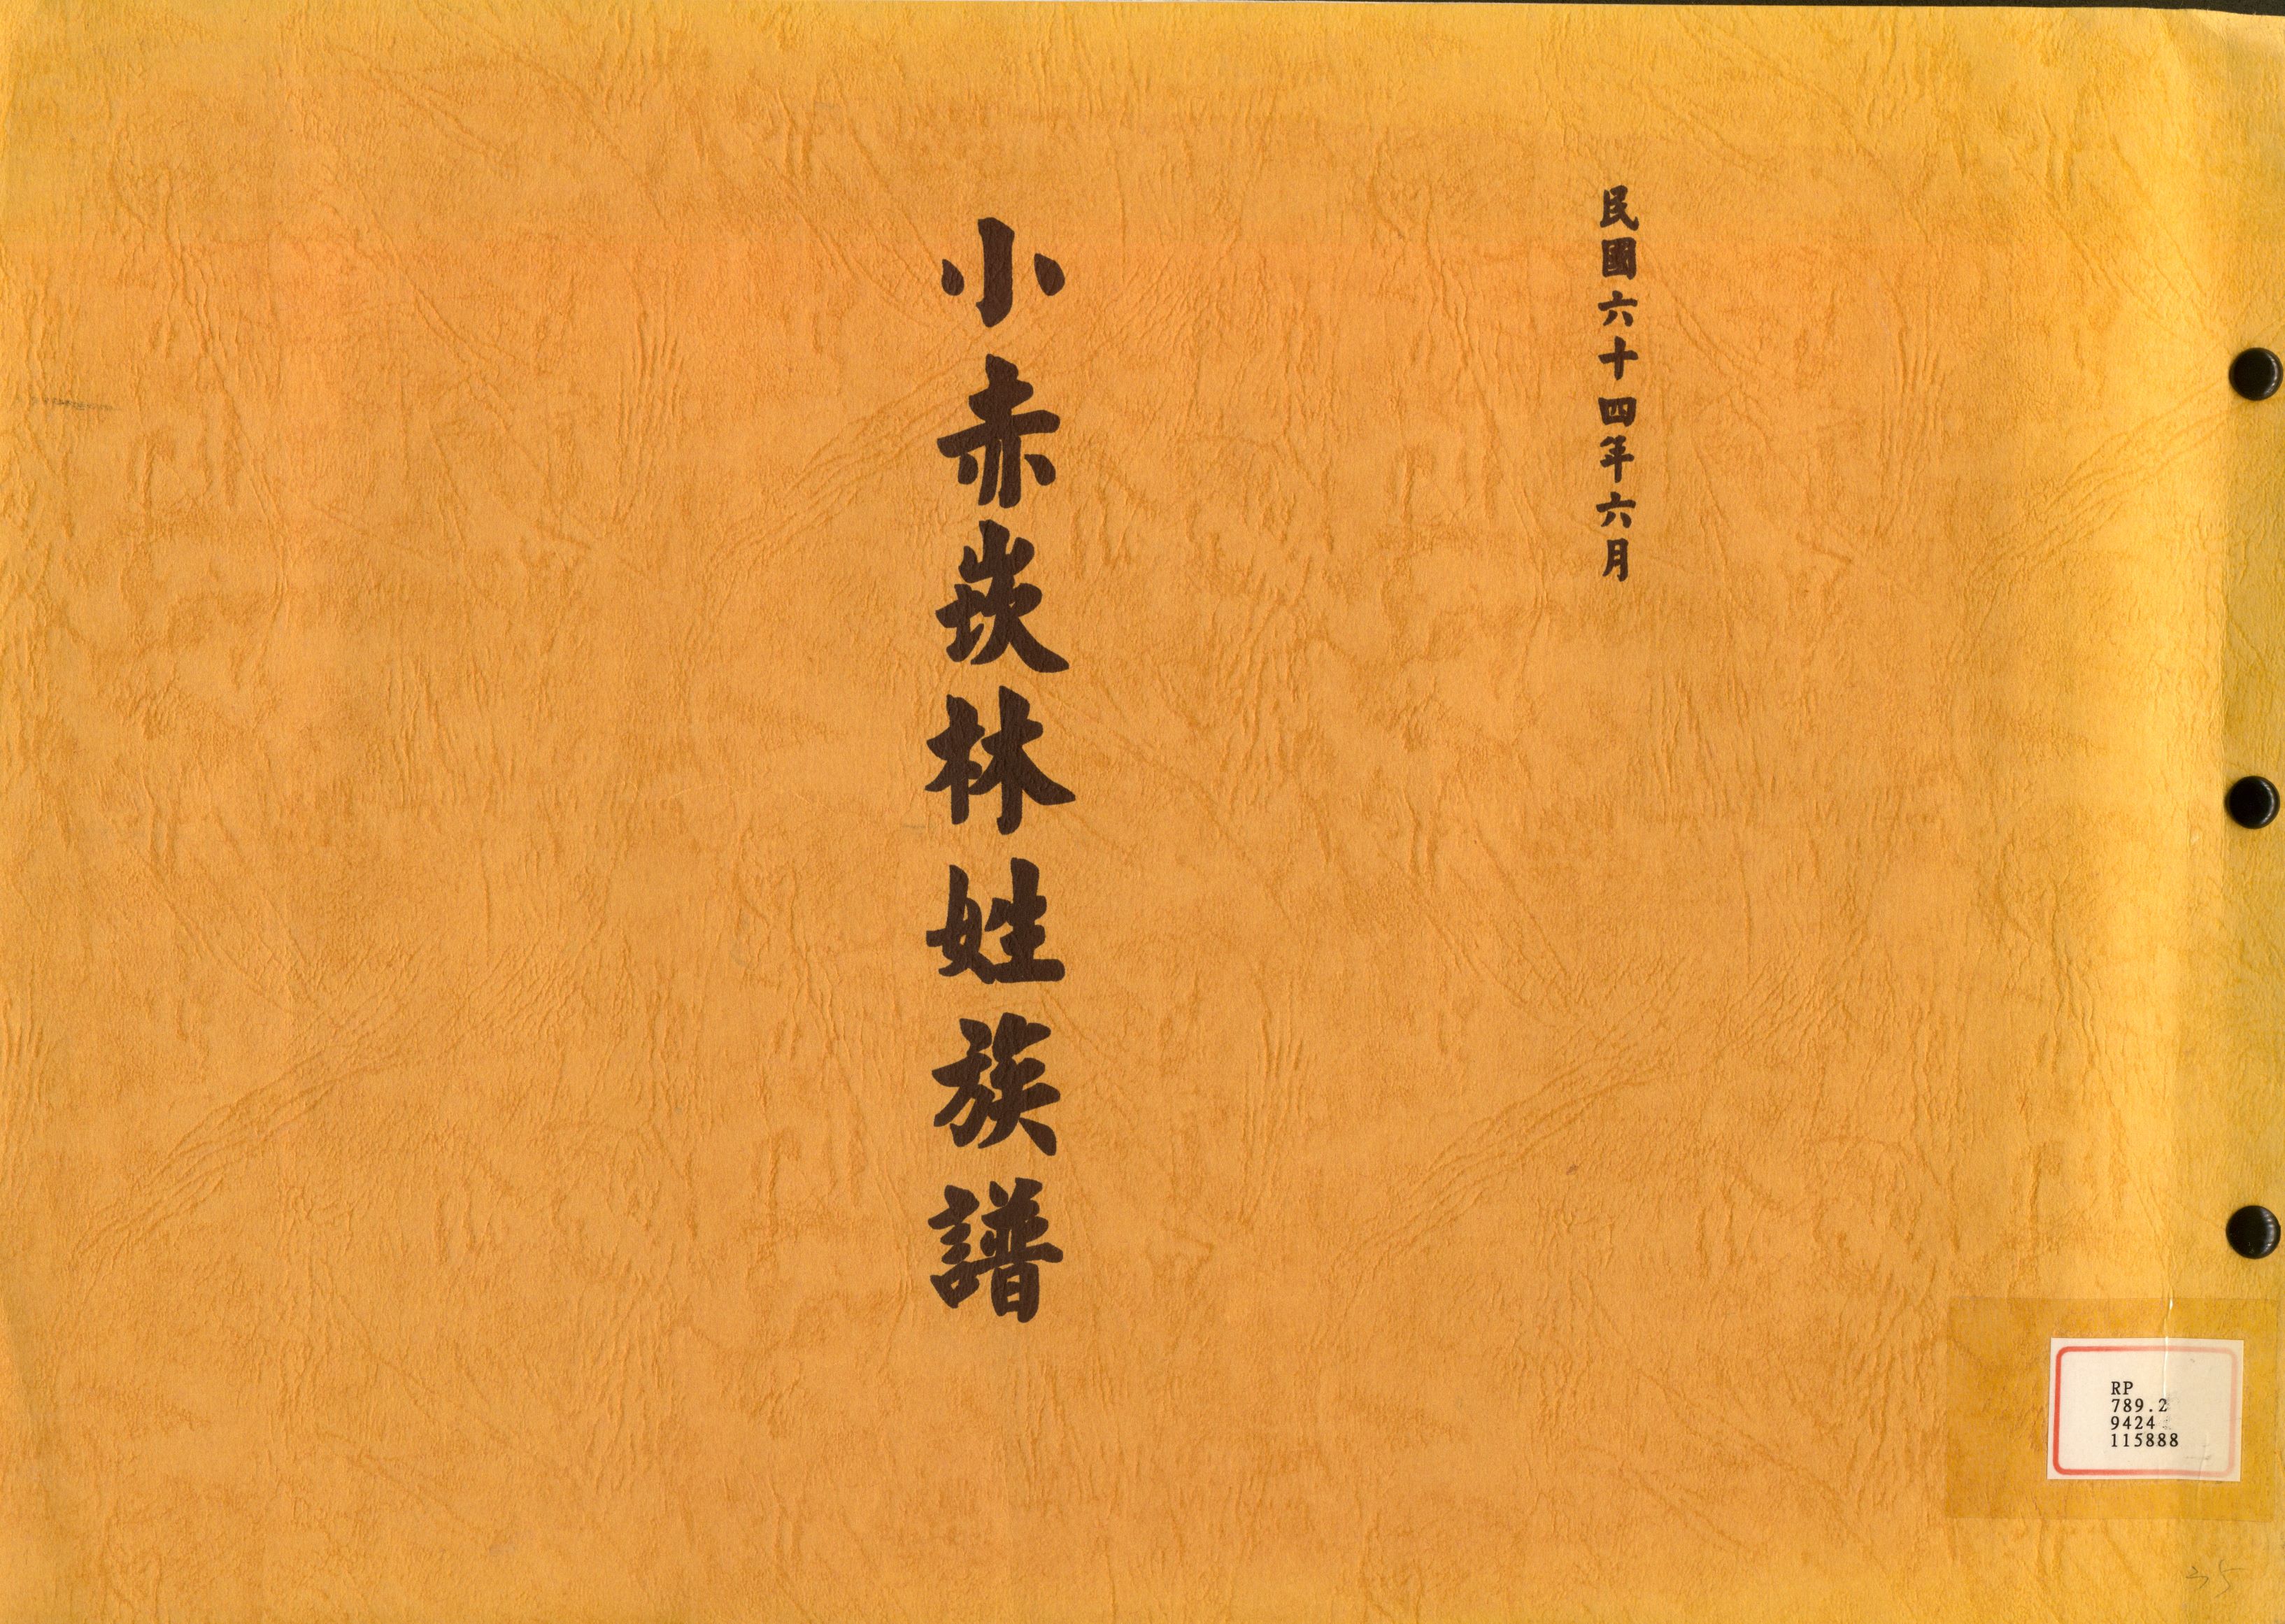 民國六十四年六月
小赤崁林姓族譜
RP
789.2
9424
115888
35